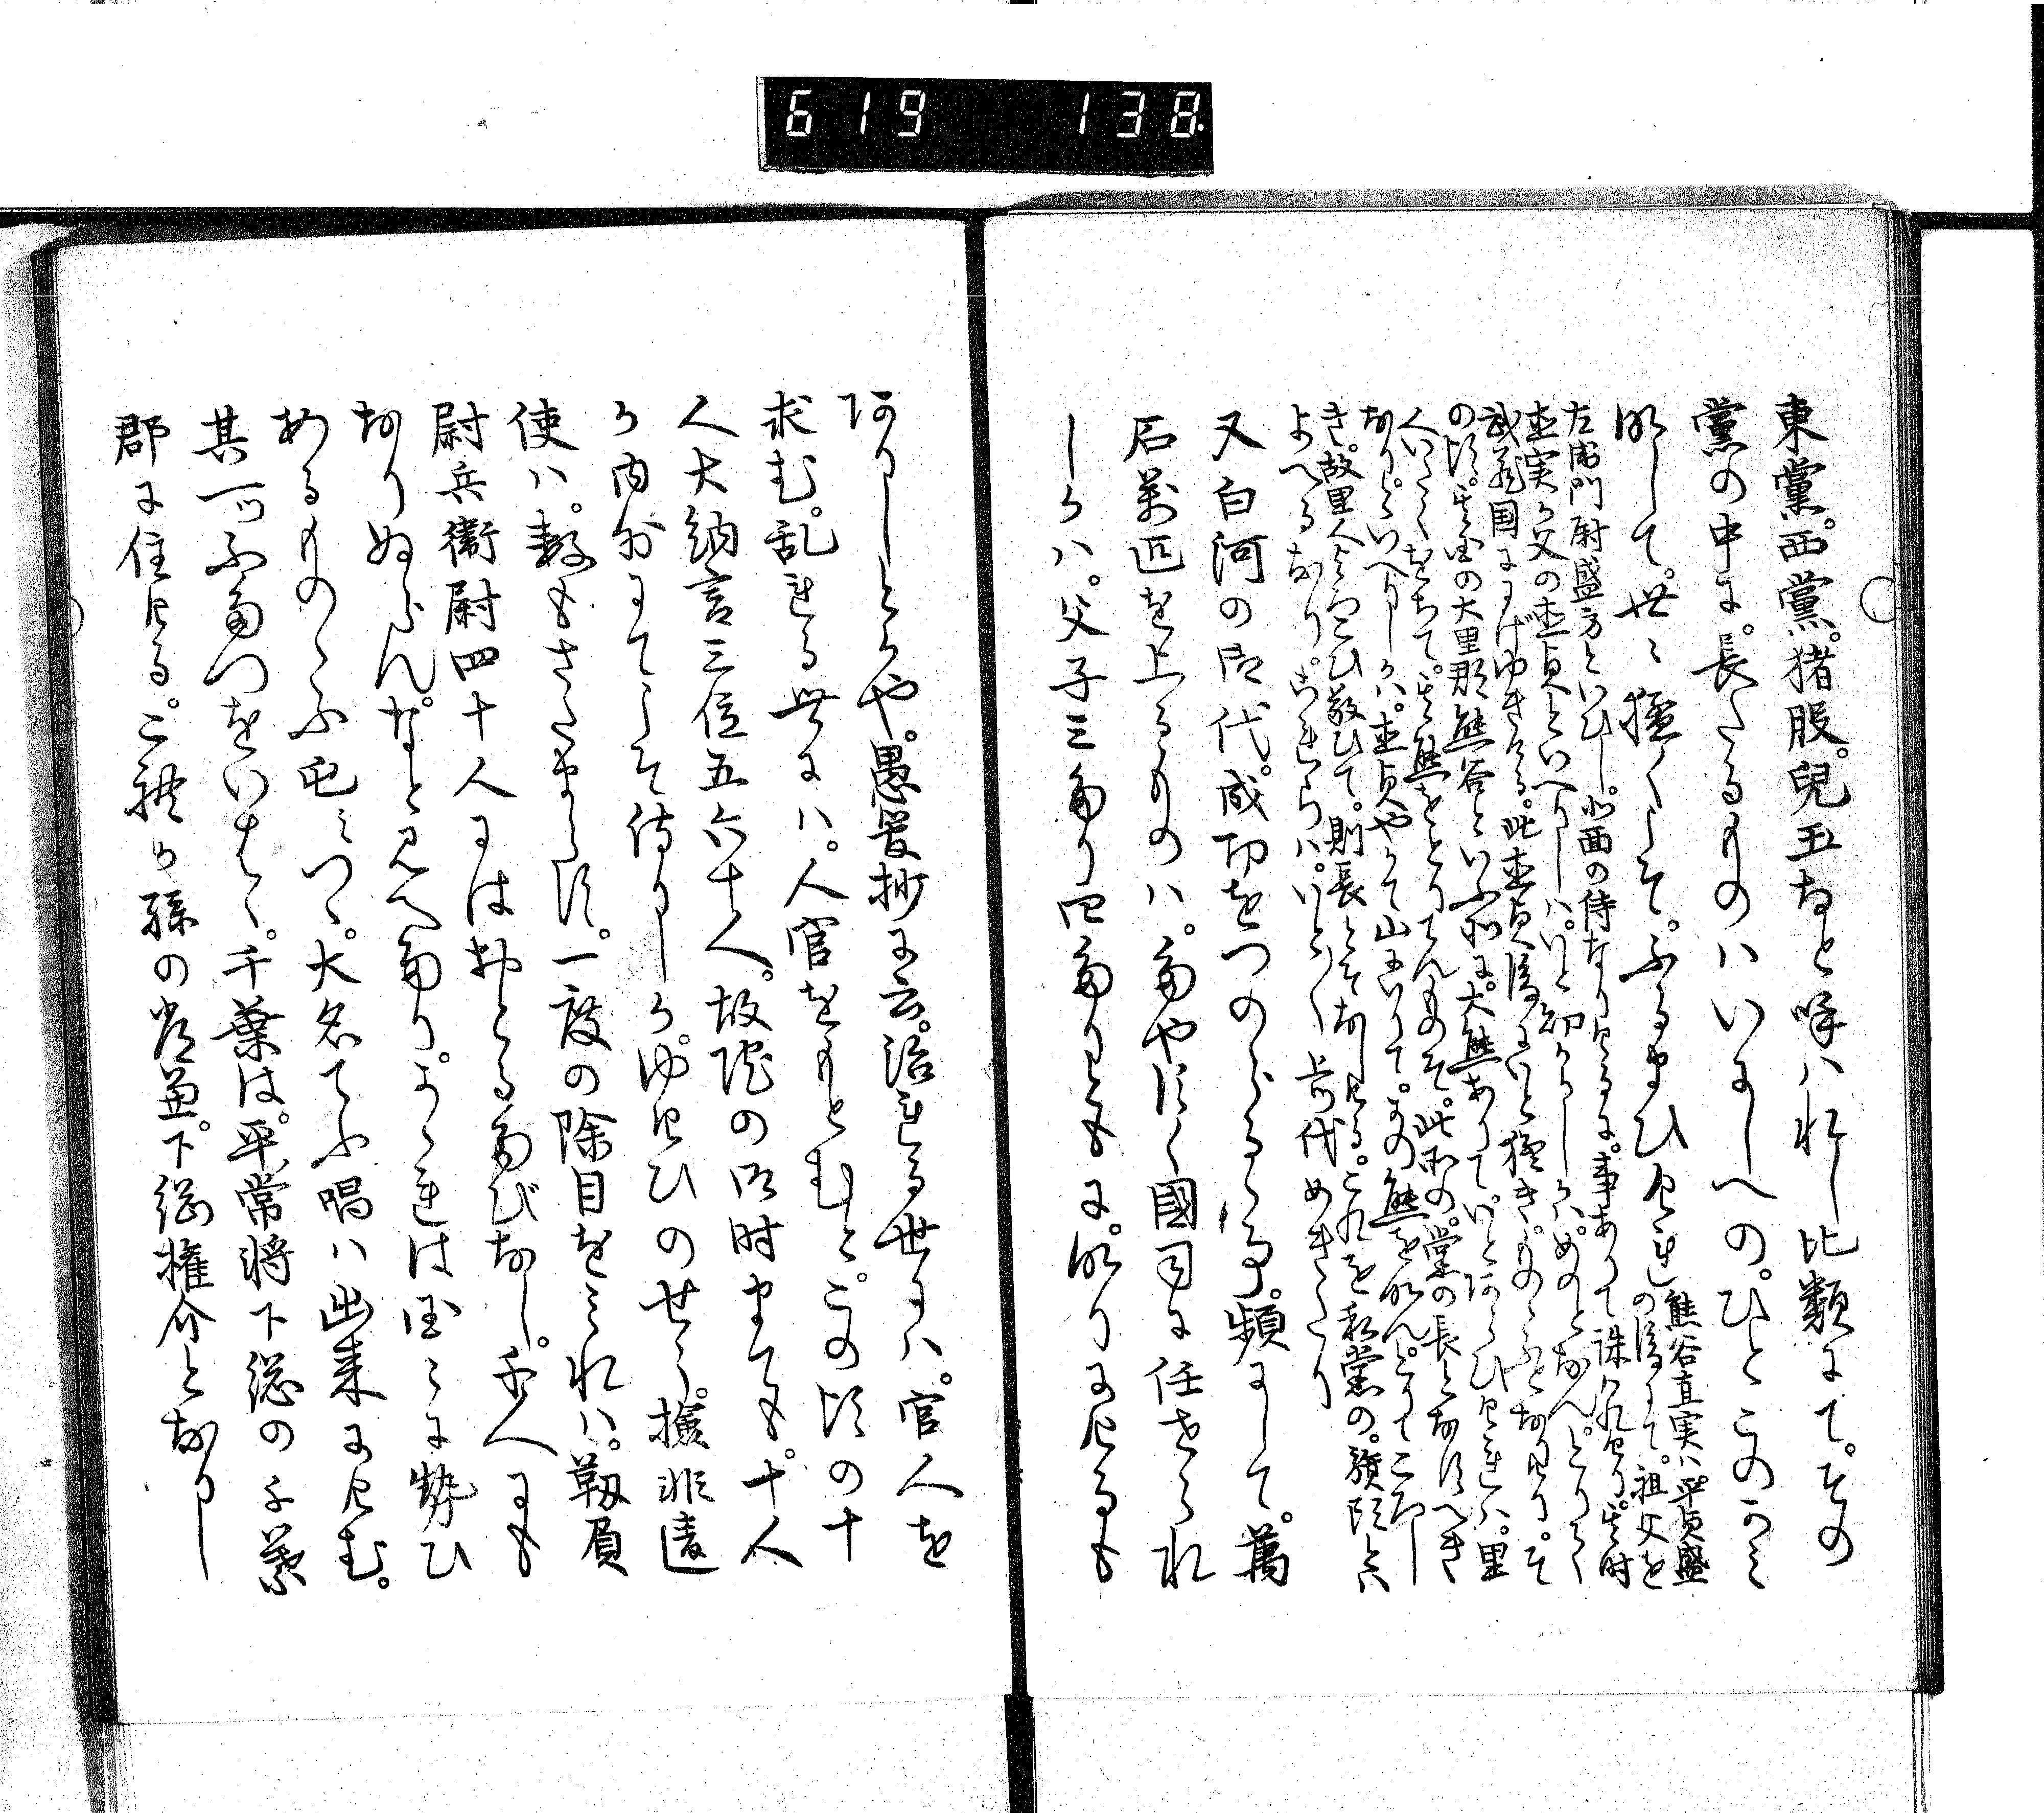 619 138
東黨。西黨。猪股。兒玉なと呼ハれし比類にて。その
黨の中に。長たるものハいにしへの。ひとこのかミ
にして。世々猛くこそ。ふるまひけれ
熊谷直実ハ。平貞盛
の後にて。祖父を
左衛門尉盛方といひし。北面の侍なりけるに。事ありて誅られけり。其時
直実か父の直貞といへりしハ。いと幼かりしかハ。めのとなん。とりて
武蔵国ににげゆきける。此直貞後にいと猛き。ものゝふとなりけり。そ
の頃。其国の大里郡熊谷といふ所に。大熊ありて。いとあらひけれハ。里
人いたくをちて。其熊をとりてんものそ。此所の。黨の長となすへき
なり。といへりしかハ。直貞やかて山にいりて。かの熊をなん。とりてころし
き。故里人よろこひ敬ひて。則長とそなしける。これを私黨の。旗頭六
よへるなり。これらハ。いとゝ上代めきたり
又白河の御代。成功をつのらるゝ事。頻にして。萬
石萬疋を上るものハ。たやすく國司に任せられ
しかハ。父子三たり四たりともに。なりにけるも
ありしとかや。愚管抄に云。治れる世にハ。官人を
求む。乱れる世にハ。人官をもとむと。この頃の十
人大納言三位五六十人。故院の御時まても。十人
か内外にてこそ侍りしか。ゆけひのせう。撿非違
使ハ。数もさたまらす。一度の除目をミれハ。靱負
尉兵衛尉四十人にはおとるたびなし。千人にも
なりぬらん。なと見へたり。かゝれは国々に勢ひ
あるものゝふ屯ミつゝ。大名てふ唱ハ出来にけむ。
其一ツふたつをいはゝ。千葉は。平常将下総の千葉
郡に住ける。これか孫の常兼。下総権介となりし